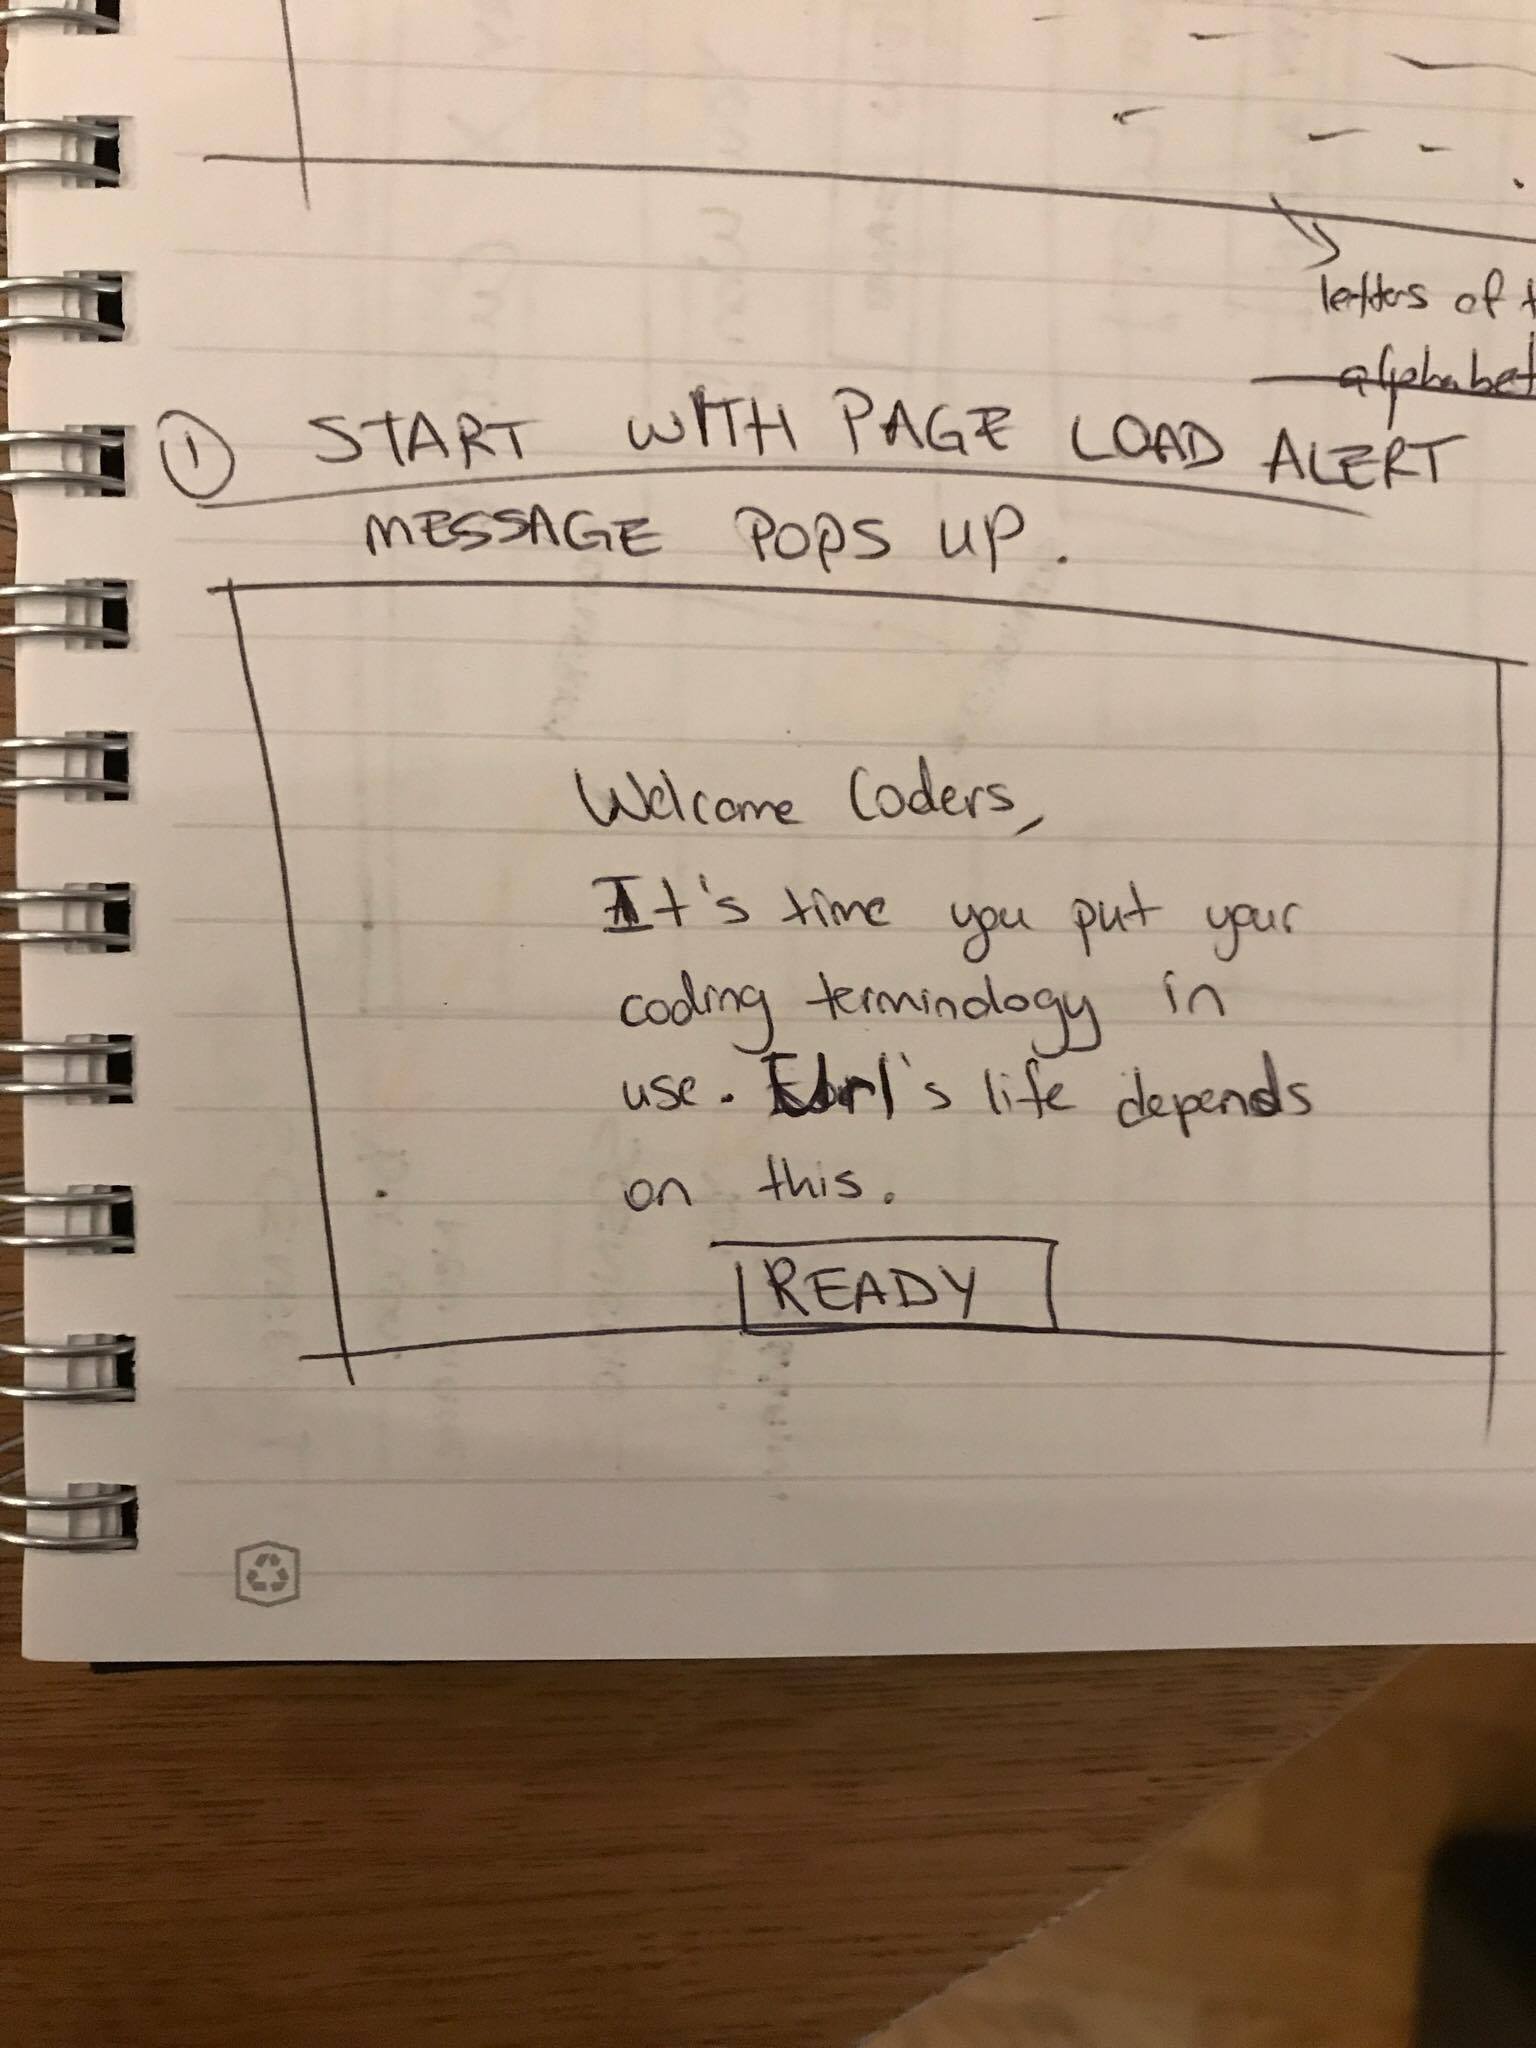 letters of
alphabet
① START WITH PAGE LOAD ALERT
MESSAGE POPS UP.
Welcome Coders,
It's time you put your
coding terminology in
use. life depends
on this.
READY